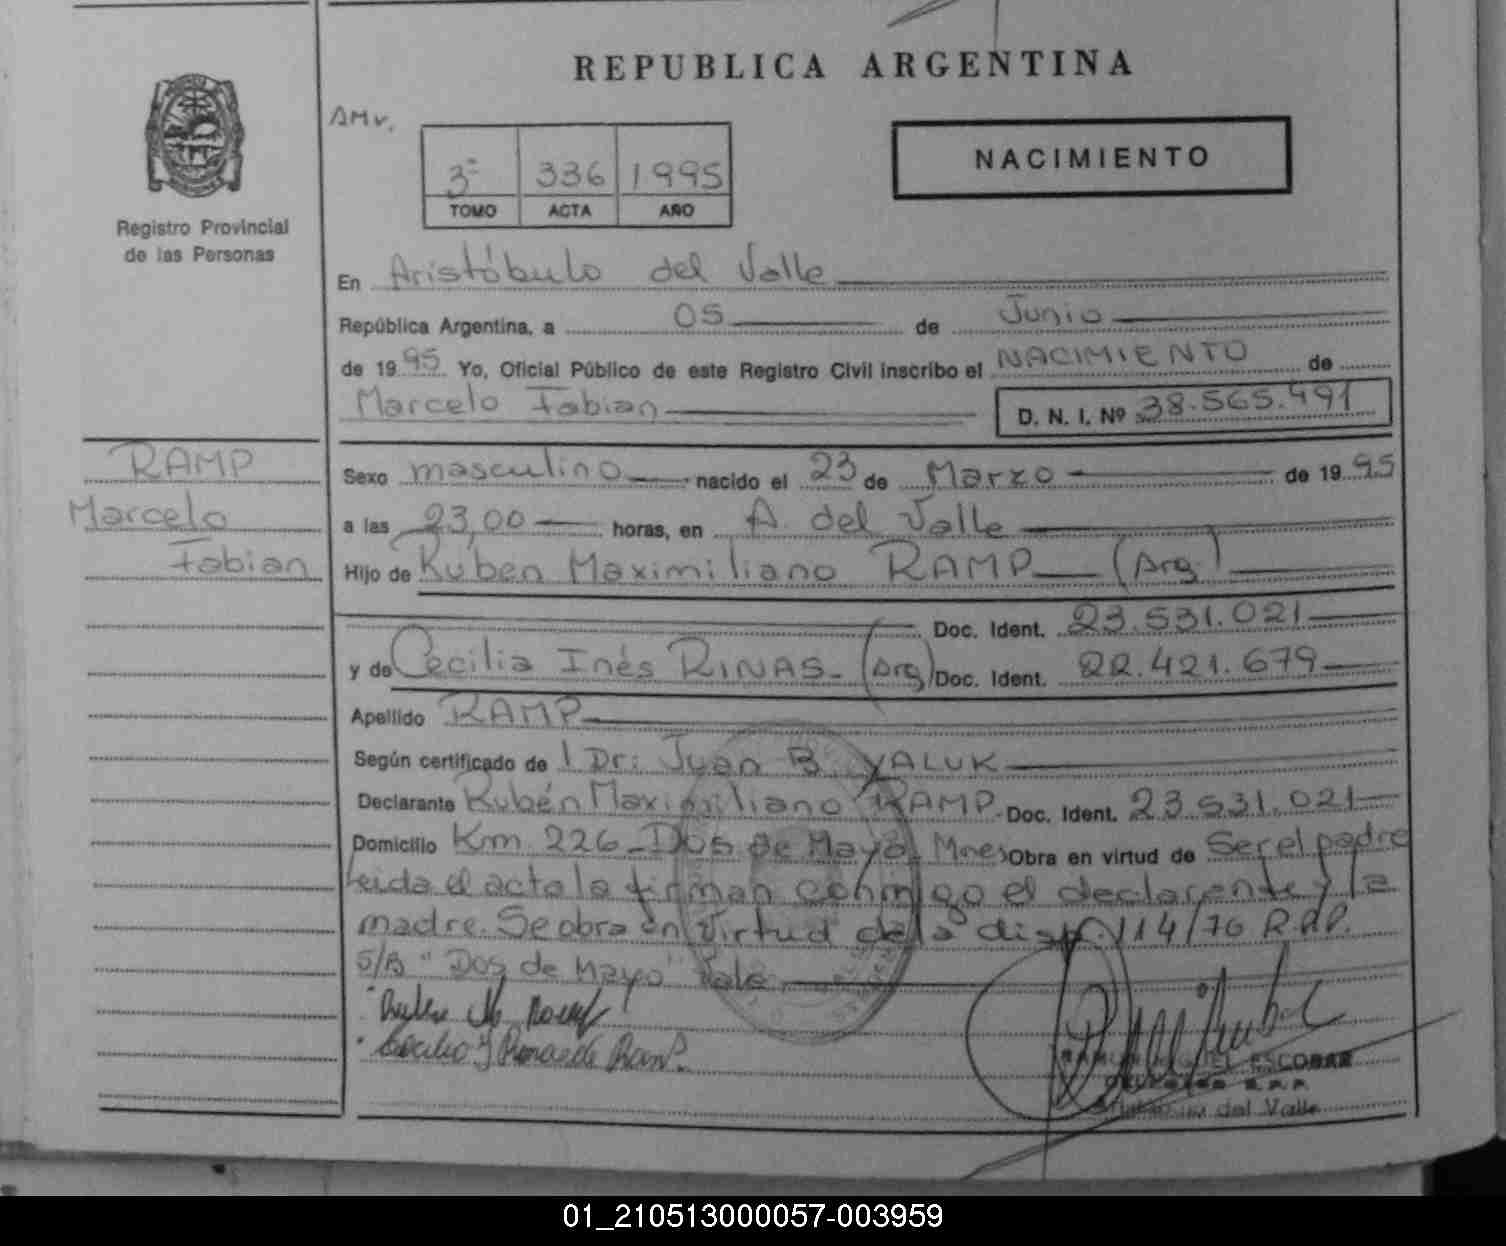 REPUBLICA ARGENTINA
Registro Provincial
de las Personas
AMV.
3º 336 1995
TOMO ACTA AÑO
NACIMIENTO
En Aristóbulo del Valle
República Argentina, a 05 de Junio
de 1995 Yo, Oficial Público de este Registro Civil inscribo el NACIMIENTO de
Marcelo Fabian D. N. I. Nº 38.565.491
RAMP
Marcelo
Fabian
Sexo masculino nacido el 23 de Marzo de 1995
a las 23,00 horas, en A. del Valle
Hijo de Ruben Maximiliano RAMP (Arg)
Doc. Ident. 23.531.021
y de Cecilia Inés RINAS- (Arg) Doc. Ident. 22.421.679
Apellido RAMP
Según certificado de l Dr: Juan B. YALUK
Declarante Rubén Maximiliano RAMP. Doc. Ident. 23.531.021
Domicilio Km 226-Dos de Mayo, Mnes Obra en virtud de Ser el padre
leida el acta la firman conmigo el declarante y la
madre. Se obra en virtud de la disp. 114/76 R.P.P.
S/B "Dos de Mayo" Vale
ESCOBAR
R.P.P.
del Valle
01_210513000057-003959